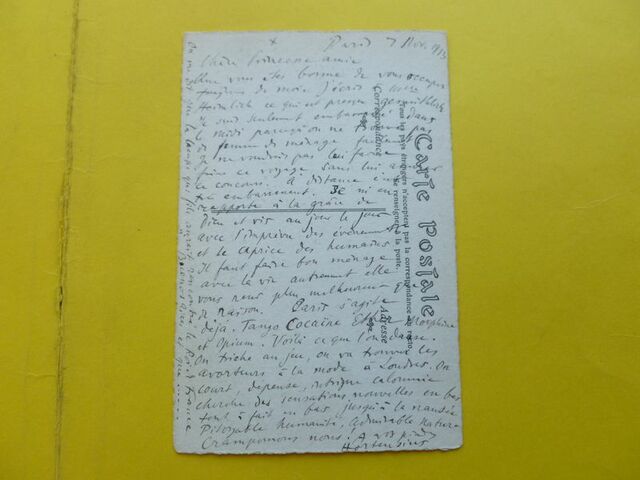 Paris 7 Nov. 1913
Chère Princesse amie
vous êtes bonne de vous occuper
toujours de moi. J'écris
ce qui est presque
Je suis seulement embarrassé dans
le midi parce qu'on ne trouve pas
de femme de ménage facilement
Je ne voudrais pas lui faire
faire ce voyage sans lui assurer
le concours. À distance c'est
embarrassant. Je m'en
rapporte à la grâce de
Dieu et vis au jour le jour
avec l'imprévu des événements
et le caprice des humains
Il faut faire bon ménage
avec la vie autrement elle
vous rend plus malheureux que
de raison. Paris s'agite
déjà. Tango Cocaïne Ether Morphine
et Opium. Voilà ce que l'on danse.
On triche au jeu, on va trouver les
avorteurs à la mode à Londres. On
court, dépense, intrigue calomnie
cherche des sensations nouvelles en bas
tout à fait en bas, jusqu'à la nausée
Pitoyable humanité, admirable nature
Cramponnons nous! A vos pieds
Hortensius
Carte Postale
Tous les pays étrangers n'acceptent pas la correspondance au recto
Se renseigner à la poste.
Correspondance
Adresse